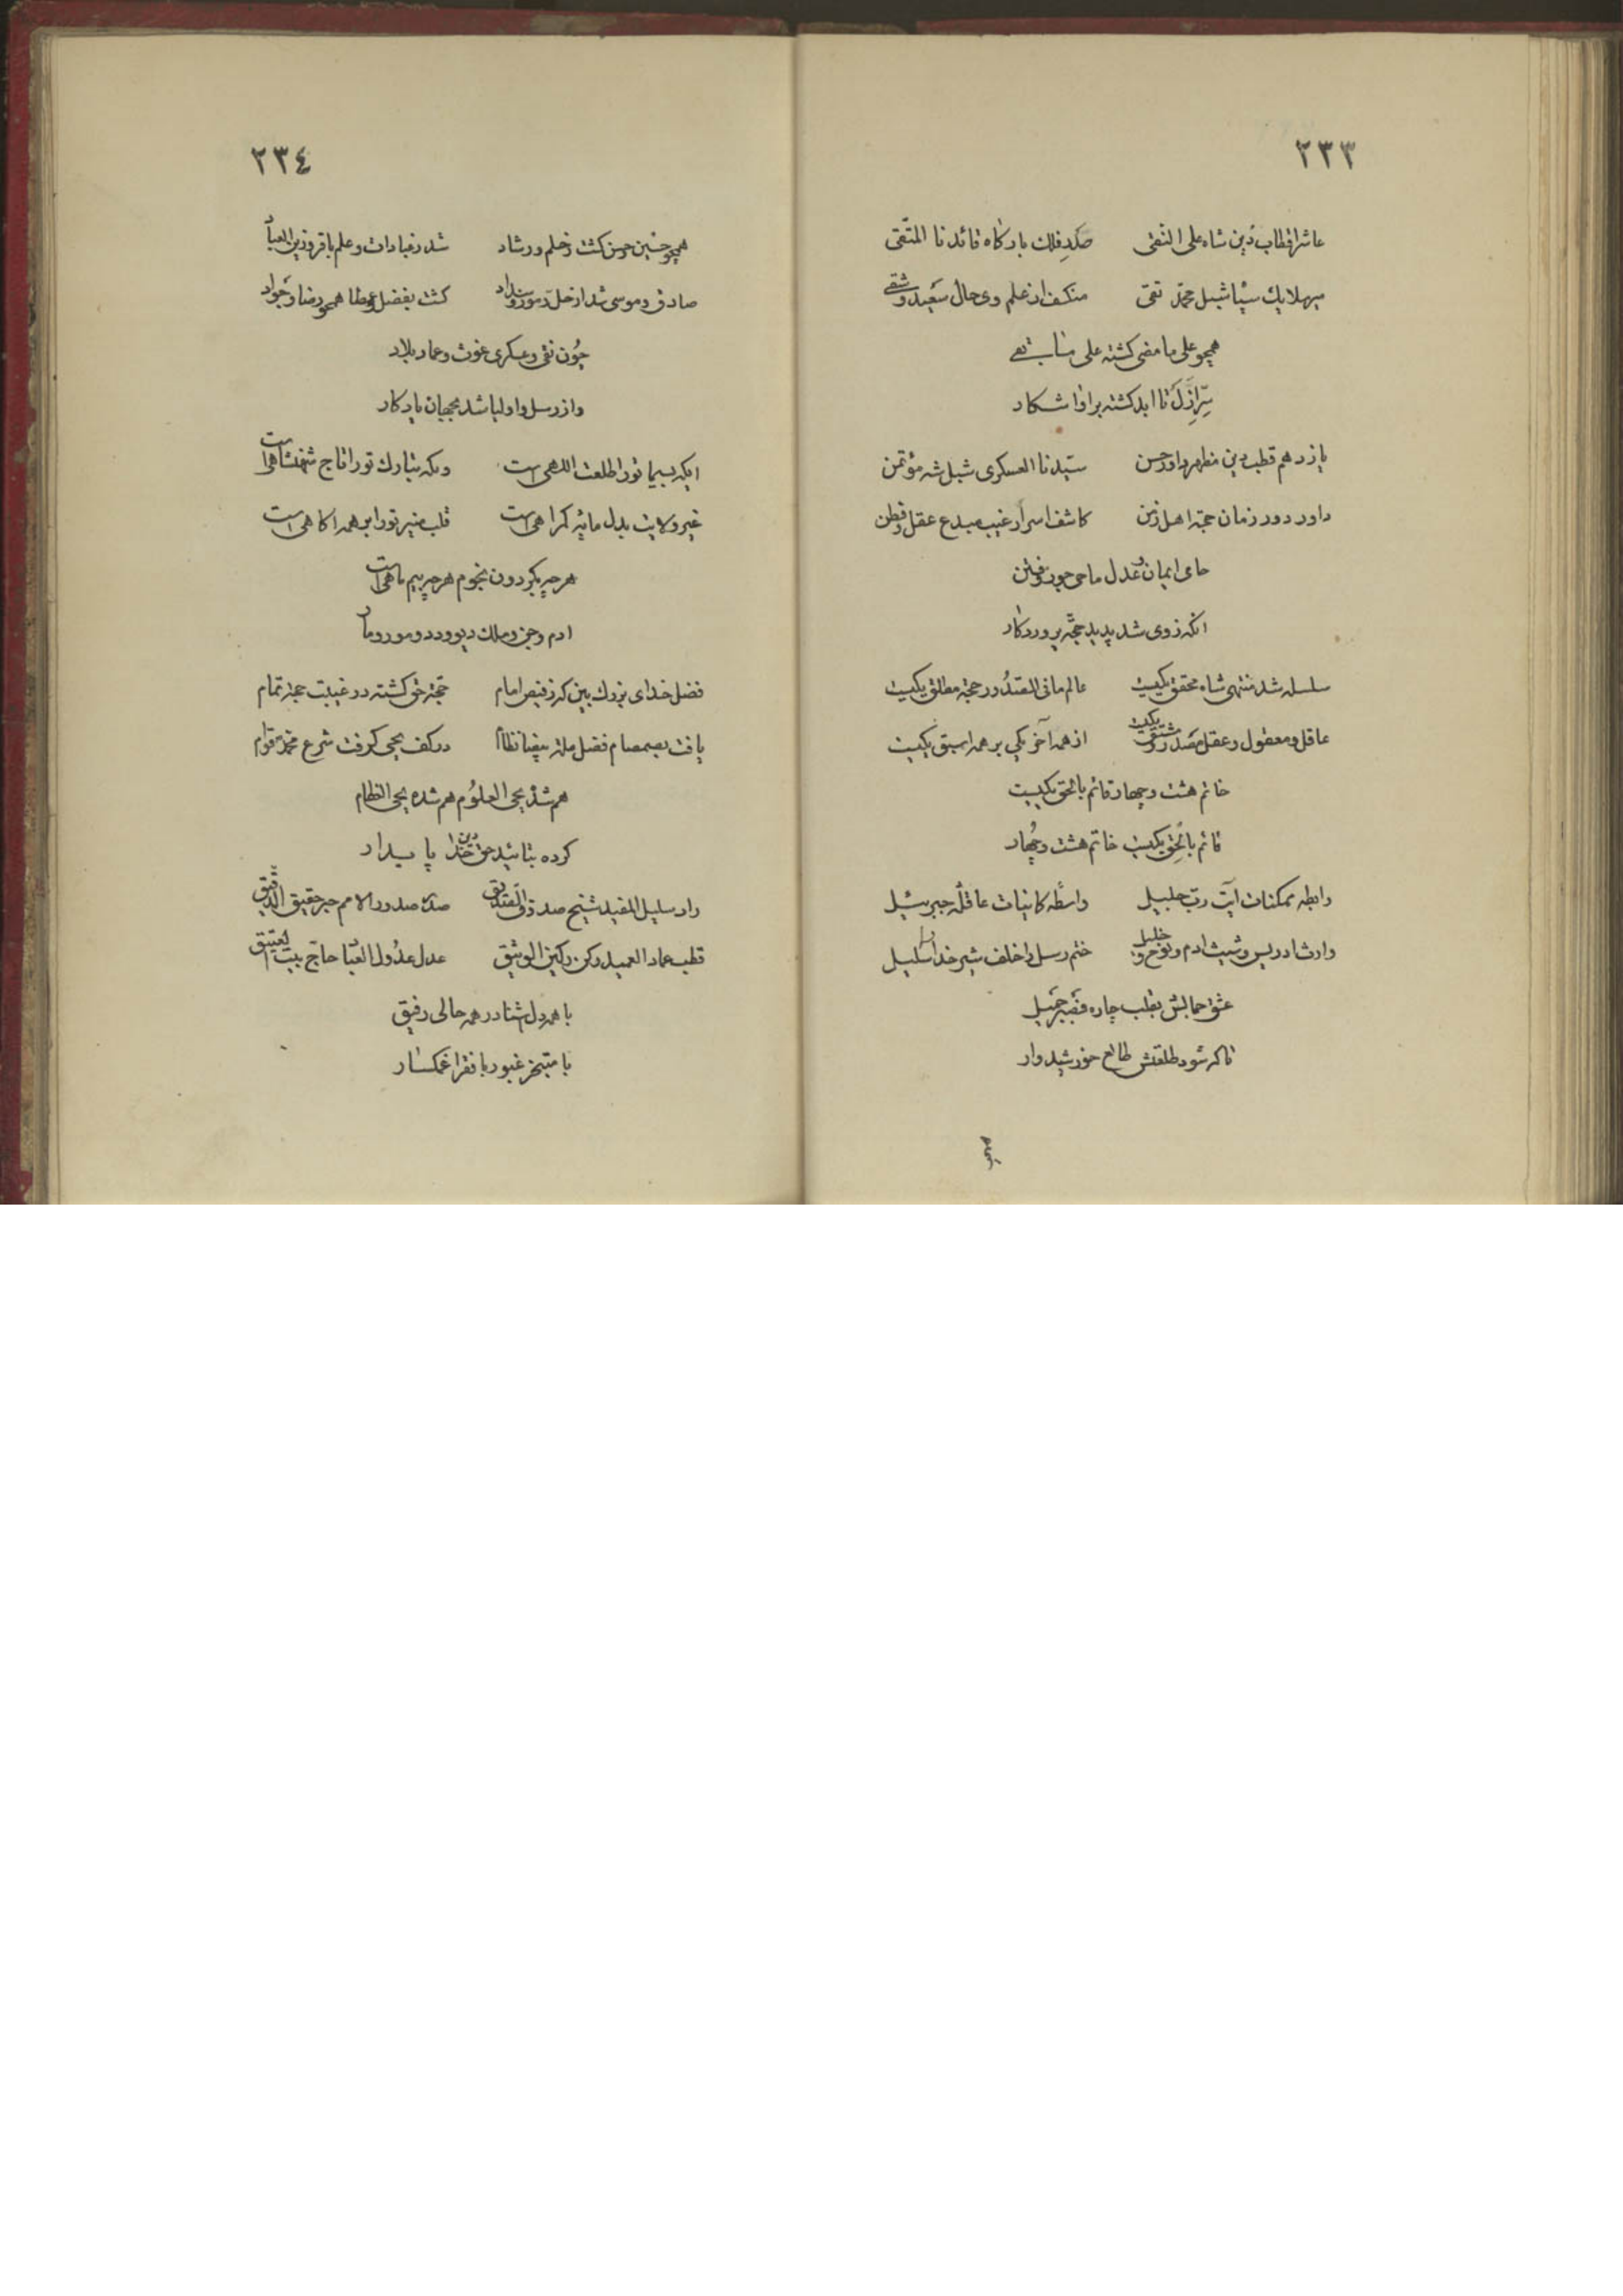 ٢٣٣
عاشر اقطاب دین شاه علی النقی صدر فلك بارکاه قائدنا المتقی
میر ملایك سپا شبل محمد تقی منکشف از علم وی حال سعید و شقی
همچو علی ما مضی کشته علی ما بقی
سِرّ ازل تا ابد کشته بر او اشکار
یازدهم قطب دین مظهر داور حسن سیدنا العسکری شبل شه مؤتمن
داور دور زمان حجة اهل زمن کاشف اسرار غیب مبدع عقل و فطن
حامی ایمان و عدل ماحی جور و فتن
انکه زوی شد پدید حجّه پروردکار
سلسله شد منتهی شاه محقق یکیست عالم مافی الصّدُور حجة مطلق یکیست
عاقل و معقول و عقل مصدر و مشتق یکیست از همه آخر یکی بر همه اسبق یکیست
خاتم هشت و چهار قائم بالحق یکیست
قائم بالحق یکیست خاتم هشت و چهار
رابطه ممکنات آیت رب جلیل واسطه کاینات عاقله جبرئیل
وارث ادریس و شیث ادم و نوح و خلیل ختم رسل را خلف شیر خدا را سلیل
عشق جمالش بقلب چاره فصبر جمیل
تا که شود طلعتش طالع خورشیدوار
همچو
٢٣٤
همچو حسین و حسن کشت ز حلم و رشاد شد ز عبادات و علم باقر و زین العباد
صادق و موسی شد از خلق و رموز و سداد کشت بفضل و عطا همچو رضا و جواد
چون نقی و عسکری غوث و عماد بلاد
واز رسل و اولیا شد بجهان یادکار
ایکه بسیما تو را طلعت اللهی است ویکه بتارك تو را تاج شهنشاهی است
غیر ولایت بدل مایه کمراهی است قلب منیر تو را بر همه اکاهی است
هر چه بکردون نجوم هر چه بیم ماهی است
ادم و جن و ملك دیو و دد و مور و مار
فضل خدای بزرك بین که ز فیض امام حجة حق کشته در غیبت حجة تمام
یافت بصمصام فضل ملة بیضا نظام در کف یحیی کرفت شرع محمد قوام
هم شد یحیی العلوم هم شده یحیی النظام
کرده بتائید حق دین خدا پایدار
راد سلیل المفید شیخ صدوق الصّدیق صدر صدور الامم حبر حقیق الدقیق
قطب عماد العمید رکن رکین الوثیق عدل عدول العباد حاج بیت العتیق
با همه دل اشنا در همه حالی رفیق
با متبختر غیور با فقرا غمکسار